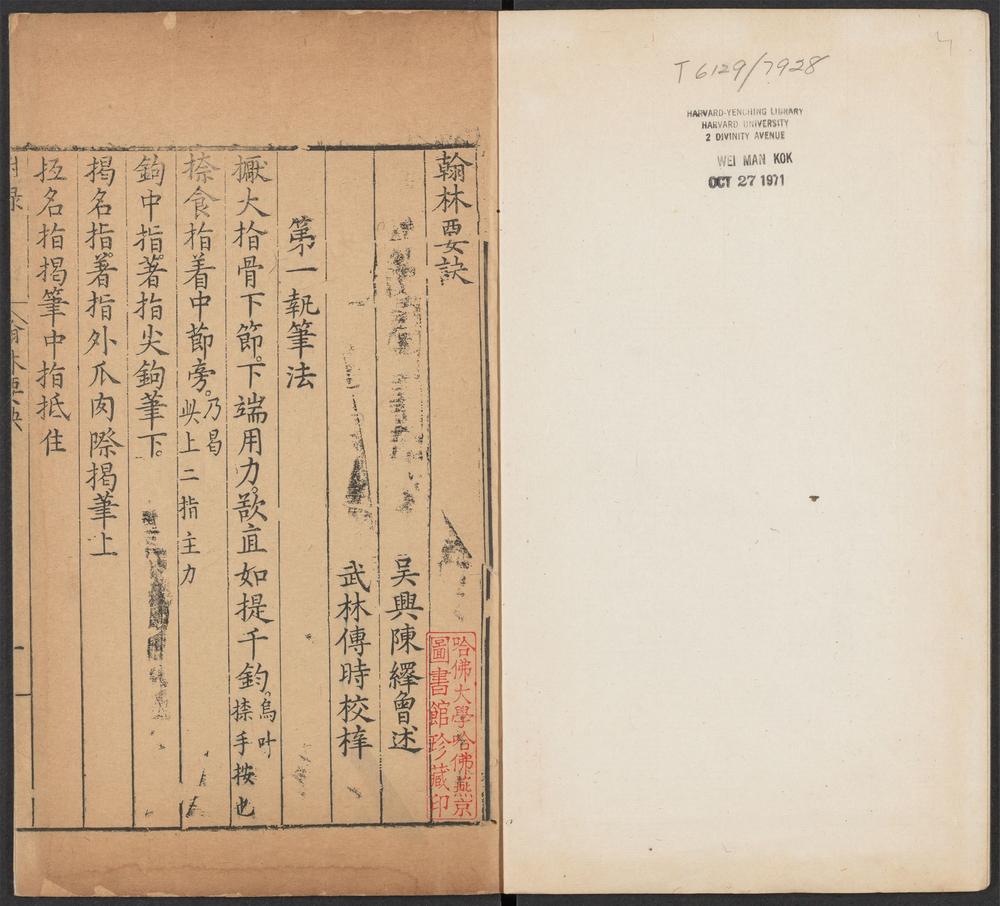 T 6129/7928
HARVARD-YENCHING LIBRARY
HARVARD UNIVERSITY
2 DIVINITY AVENUE
WEI MAN KOK
OCT 27 1971
翰林要訣
哈佛大學哈佛燕京
圖書館珍藏印
吳興陳繹曾述
武林傳時校梓
第一執筆法
擫大指骨下節。下端用力。欲直如提千鈞。烏叶捺手按也
捺食指着中節旁。乃曷此上二指主力
鉤中指。著指尖鉤筆下。
揭名指。著指外爪肉際揭筆上
抵名指揭筆中指抵住